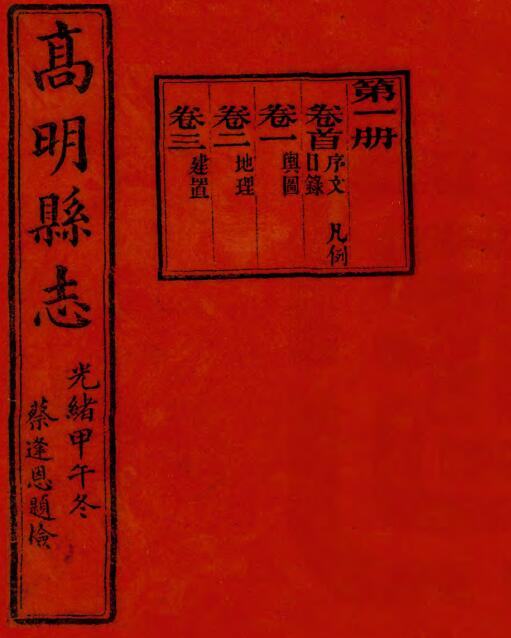 第一册
卷首 序文 凡例
目錄
卷一 輿圖
卷二 地理
卷三 建置
高明縣志
光緒甲午冬
蔡逢恩題檢